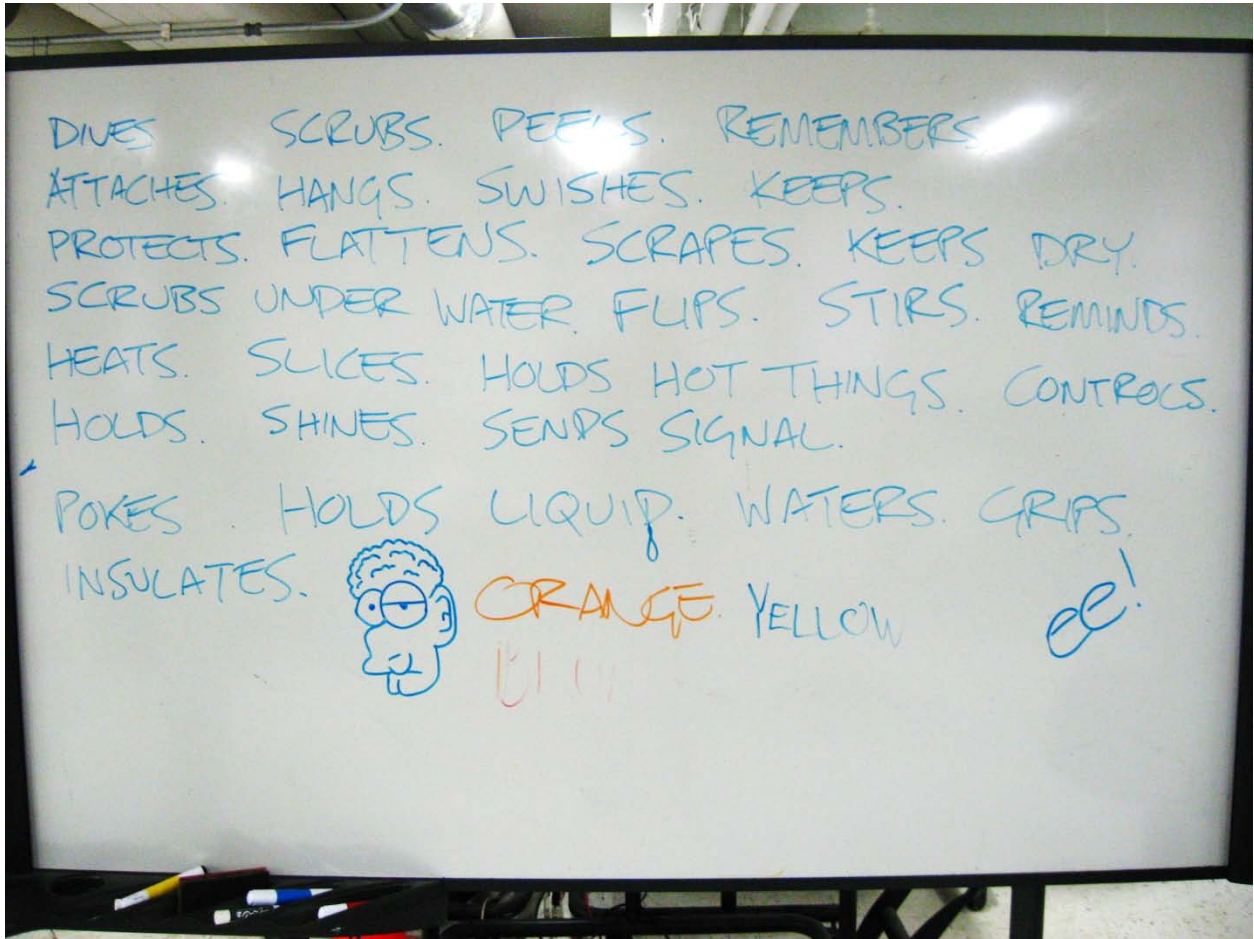 DIVES SCRUBS. PEELS. REMEMBERS.
ATTACHES. HANGS. SWISHES. KEEPS.
PROTECTS. FLATTENS. SCRAPES. KEEPS DRY.
SCRUBS UNDER WATER. FLIPS. STIRS. REMINDS.
HEATS. SLICES. HOLDS HOT THINGS. CONTROLS.
HOLDS. SHINES. SENDS SIGNAL.
POKES. HOLDS LIQUID. WATERS. GRIPS.
INSULATES. ORANGE. YELLOW ee!